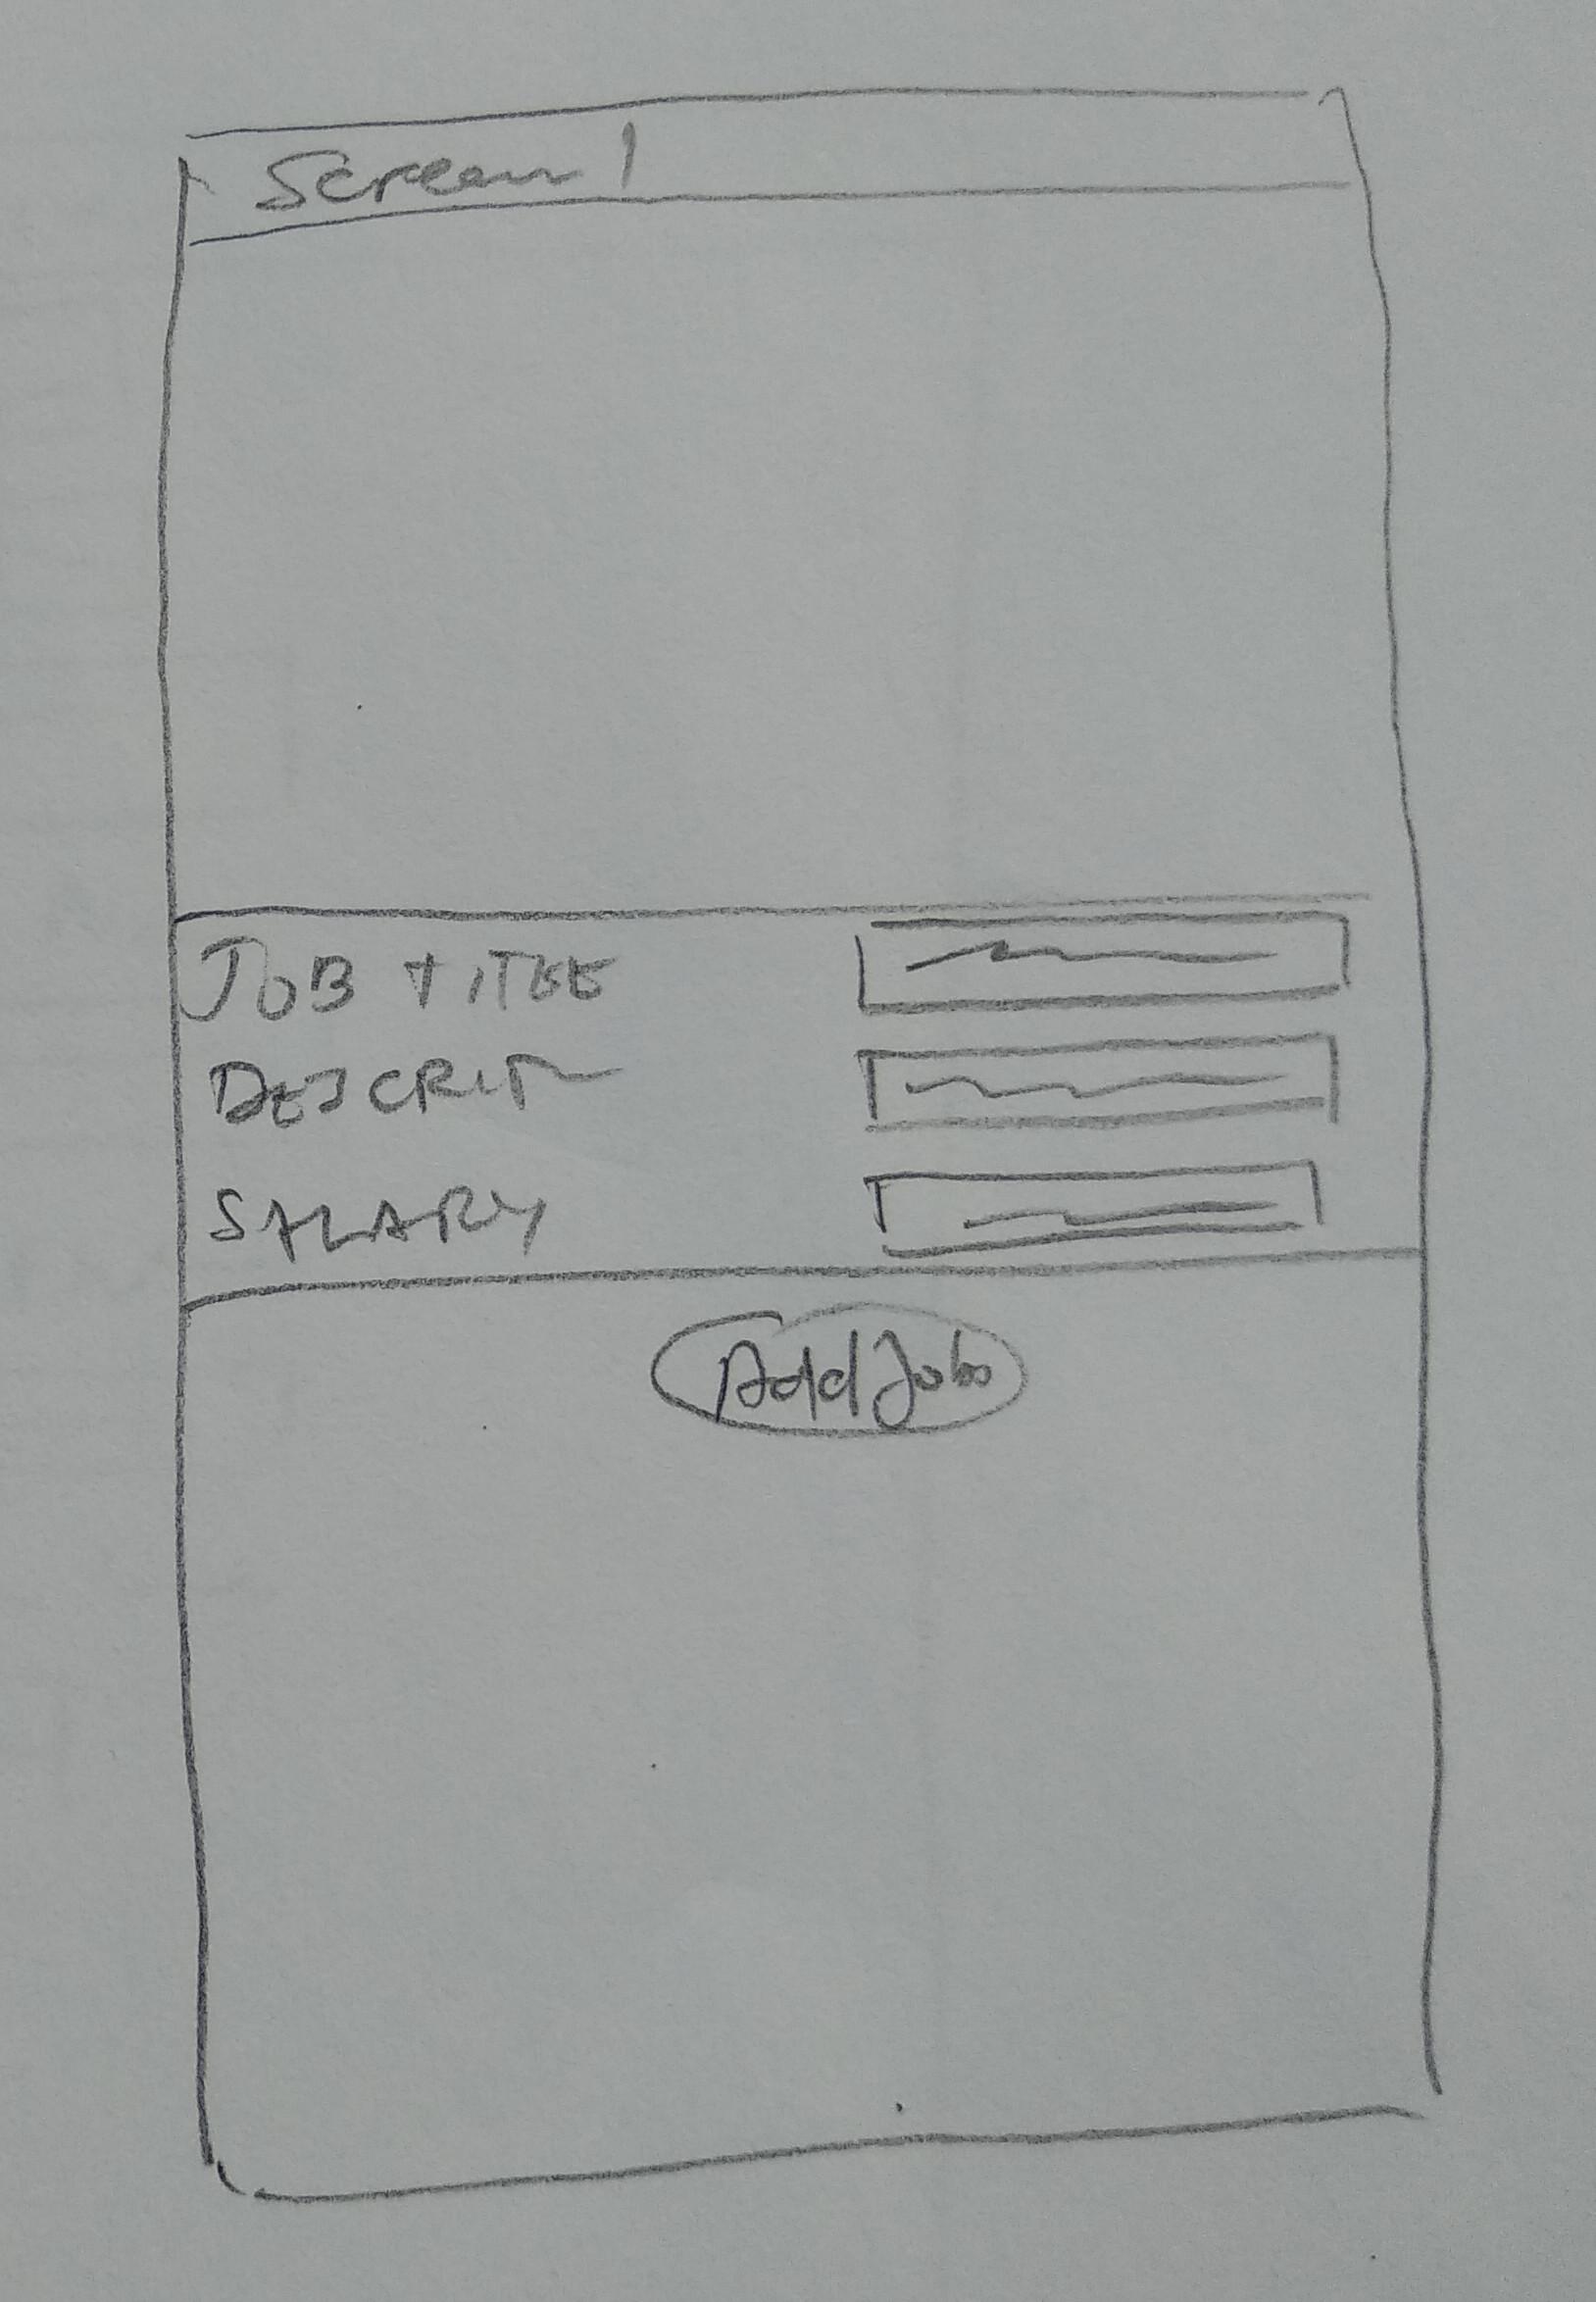 Screen 1
JOB TITLE
DESCRIPT
SALARY
Add Jobs